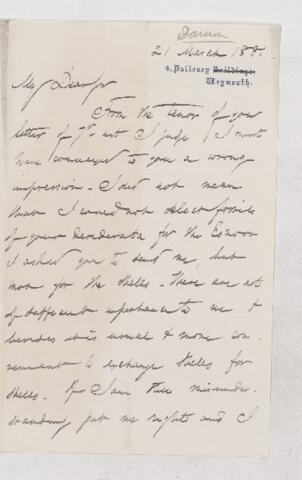 Damon
21 March 188
4, Pulteney Buildings,
Weymouth.
My Dear Sir
From the tenor of your
letter of 7th inst I judge I must
have conveyed to you a wrong
impression - I did not mean
that I could not select fossils
of your desiderata for the
I asked you to send me, but
not for the shells - These are not
of sufficient importance to me &
besides it is usual & more con-
venient to exchange shells for
shells. If I am still misunder-
standing put me right and I